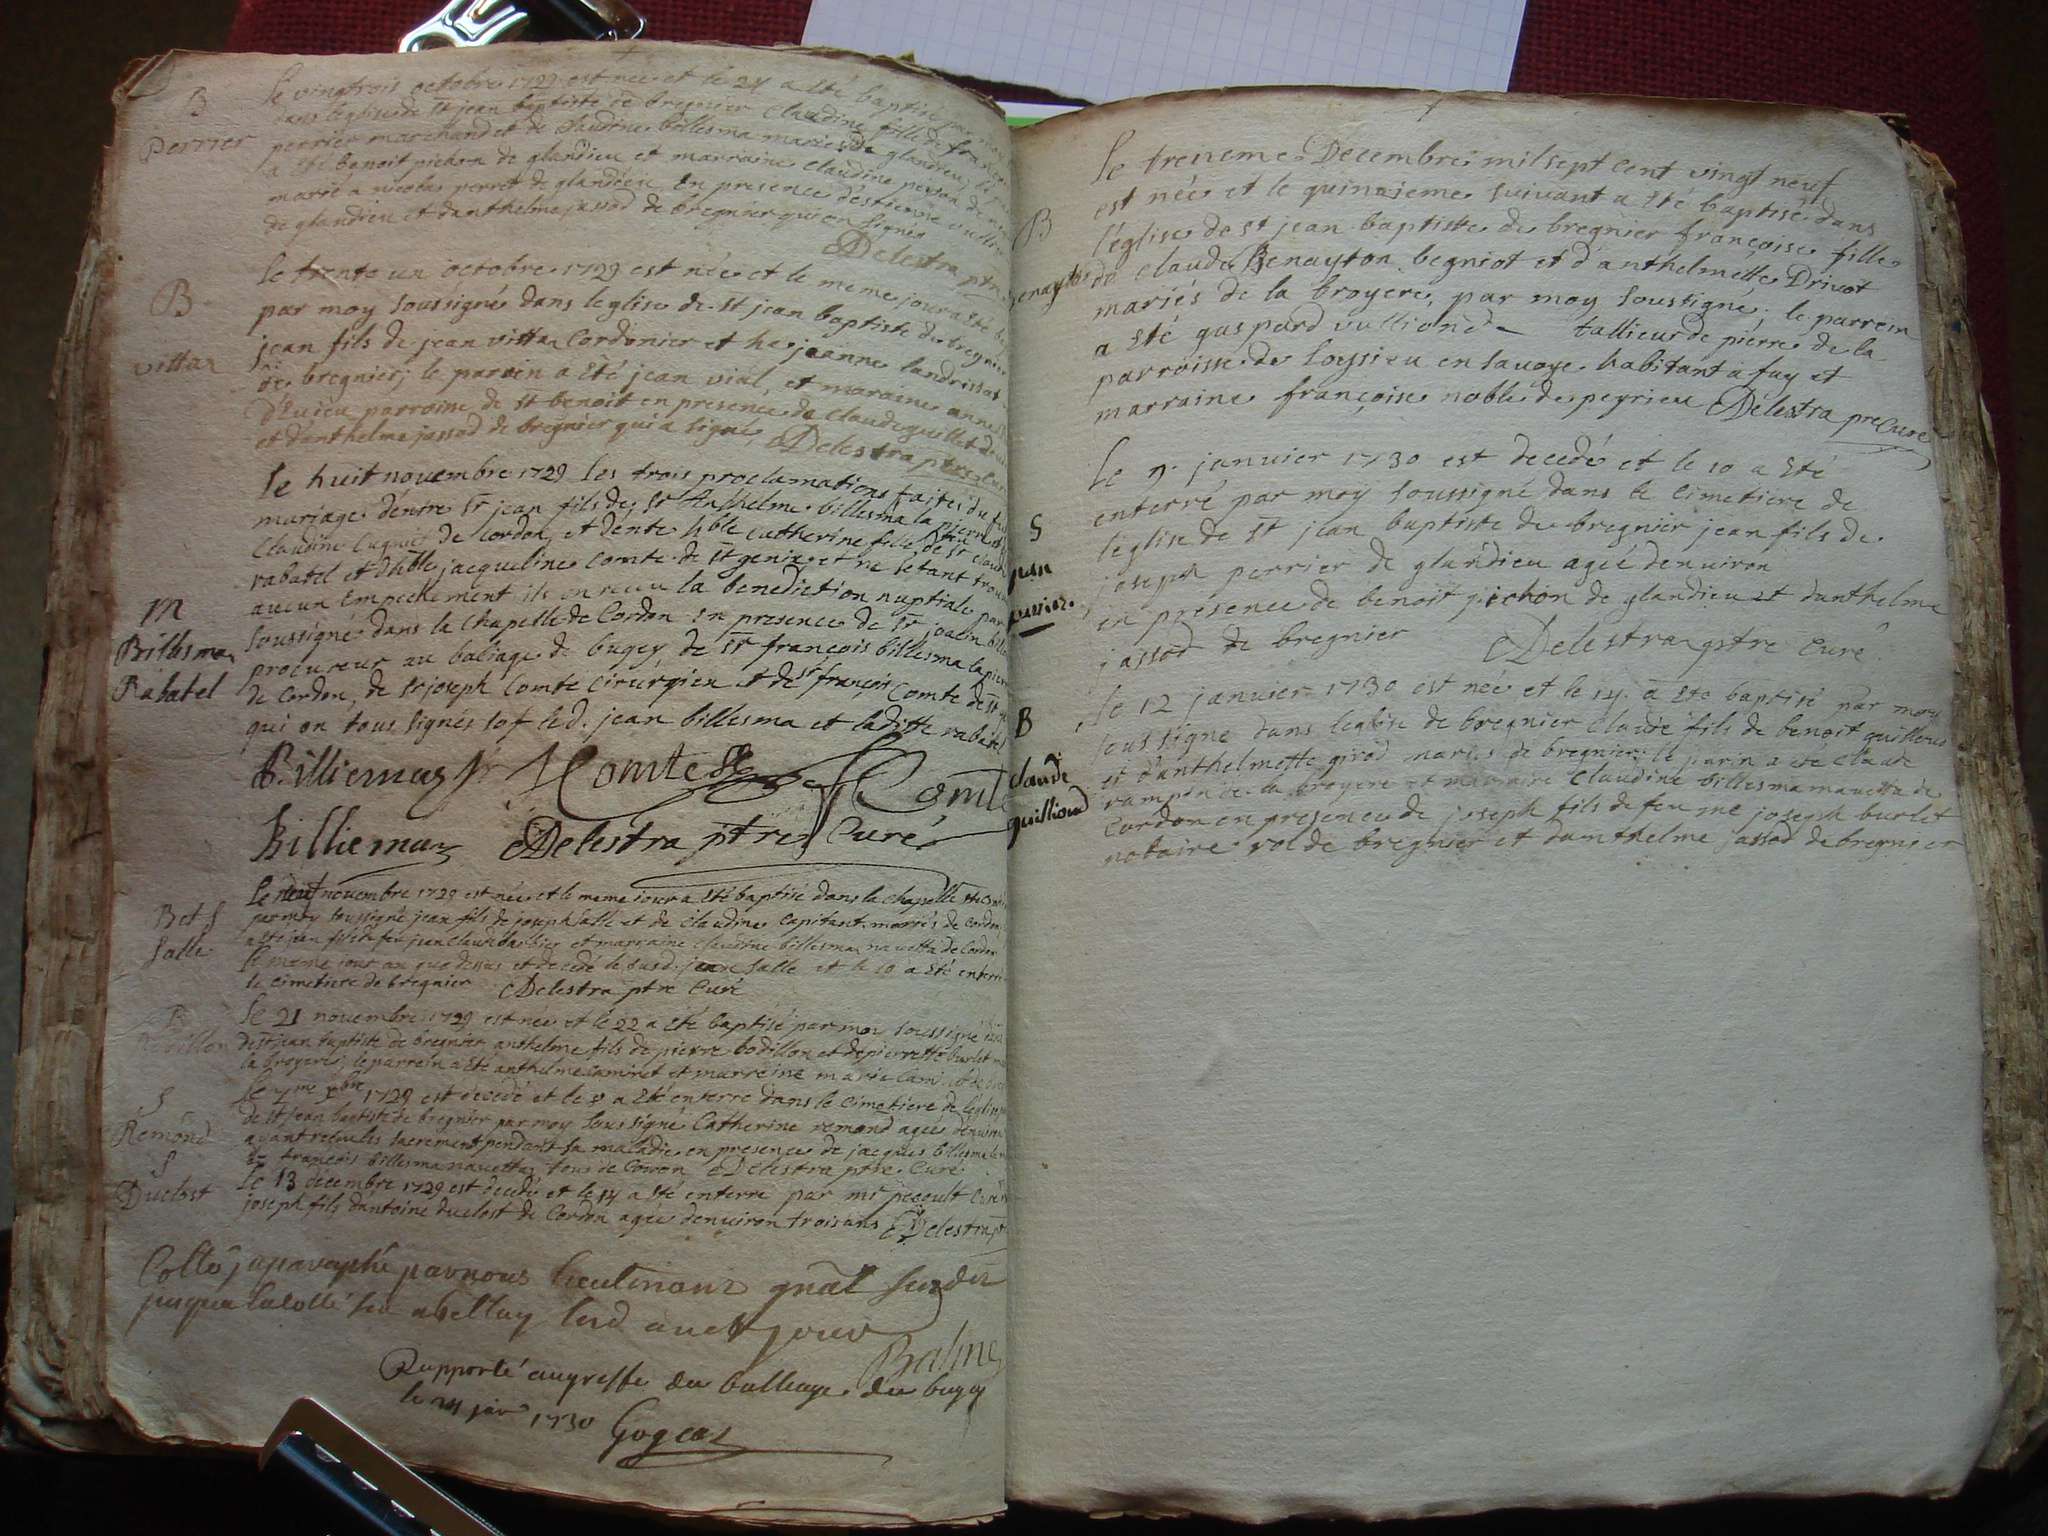 B
Perrier
Le vingtrois octobre 1729 est née et le 24 a eté baptisé par moy
dans leglise de st jean baptiste de bregnier Claudine fille de francois
perrier marchand et de Claudine billesma maries de glandieu; le
a eté benoit pichon de glandieu et marraine Claudine
marié a nicolas perret de glandieu En presence destienne
de glandieu et danthelme jassod de bregnier qui on signés
Delestra ptre
B
vittan
le trente un octobre 1729 est née et le meme jour a eté
par moy soussigné dans leglise de st jean baptiste de bregnier
jean fils de jean vittan Cordonier et he. jeanne landrissat
de bregnier; le parein a eté jean vial, et maraine anne
d'Luieu parroisse de st benoit en presence de Claude guillet
et danthelme jassod de bregnier qui a signé Delestra ptre Curé
M
Billesma
Rabatel
Le huit novembre 1729 les trois proclamations faites du
mariage dentre sr jean fils de sr Anthelme billesma la pierre
Claudine Cuguet de Cordon, et dente hble Catherine fille de sr Claude
rabatel et dhble jacqueline Comte de st genix et ne setant trouvé
aucun Empechement ils on recu la benediction nuptiale par
soussigné dans la chapelle de Cordon en presence de sr
procureur au baliage de bugey de sr francois billesma lapierre
de Cordon, de sr joseph Comte Cirurgien et de sr francois Comte de st
qui on tous signés sof led. jean billesma et laditte rabatel
Billiemaz JComte Comte
Billiemaz Delestra ptre Curé
B et S
Salle
Le neuf novembre 1729 est née et le meme jour a eté baptisé dans la chapelle de
par moy soussigné jean fils de joseph Salle et de Claudine Capitant mariés de Cordon
a eté jean fils de feu jean Claude barbier et marraine Claudine billesma navetta de Cordon
le meme jour an que dessus et decedé le susd. jean Salle et le 10 a eté enterré
le Cimetiere de bregnier Delestra ptre Curé
B
Bodillon
Le 21 novembre 1729 est née et le 22 a eté baptisé par moy soussigné dans
de st jean baptiste de bregnier anthelme fils de pierre bodillon et de pierrette burlet
la broyere; le parrein a eté anthelme Caminet et marreine marie
S
Remond
Le 7me xbre 1729 est decedé et le 8 a eté enterré dans le Cimetiere de leglise
de st jean baptiste de bregnier par moy soussigné Catherine remond agée denviron
ayant recu les sacrement pendant sa maladie en presence de jacques billesma
francois billesma navetta tous de Cordon Delestra ptre Curé
S
Duclost
Le 13 decembre 1729 est decedé et le 14 a eté enterré par mr pecoult Curé
joseph fils dantoine duclost de Cordon agée denviron trois ans Delestra ptre
Cotté paraphé par nous lieutenant gnal
jusqua la Cotte a belley
Balme
Rapporté au greffe du balliage du bugey
le 24 janr 1730
B
Benayton
Le treneme Decembre mil sept cent vingt neuf
est née et le quinzieme suivant a eté baptisé dans
léglise de st jean baptiste de bregnier françoise fille
de Claude Benayton begniot et d'anthelmette Drivot
mariés de la broyere, par moy soussigné; le parrein
a eté gaspard vulliond tallieur de pierre de la
parroisse de loysieu en savoye habitant a fay et
marraine françoise noble de peyrieu Délestra pre Curé
S
jean
perrier
Le 9. janvier 1730 est decedé et le 10 a eté
enterré par moy soussigné dans le Cimetiere de
leglise de st jean baptiste de bregnier jean fils de
joseph perrier de glandieu agée denviron
en presence de benoit pichon de glandieu et danthelme
jassod de bregnier Delestra ptre Curé
B
Claude
guilliond
Le 12 janvier 1730 est née et le 14. a eté baptisé par moy
soussigné dans leglise de bregnier Claude fils de benoit guilliond
et d'anthelmette girod mariés de bregnier; le parin a eté Claude
de la broyere et marraine Claudine billesma navetta de
Cordon en presence de joseph fils de feu me joseph burlet
notaire rol de bregnier et danthelme jassod de bregnier